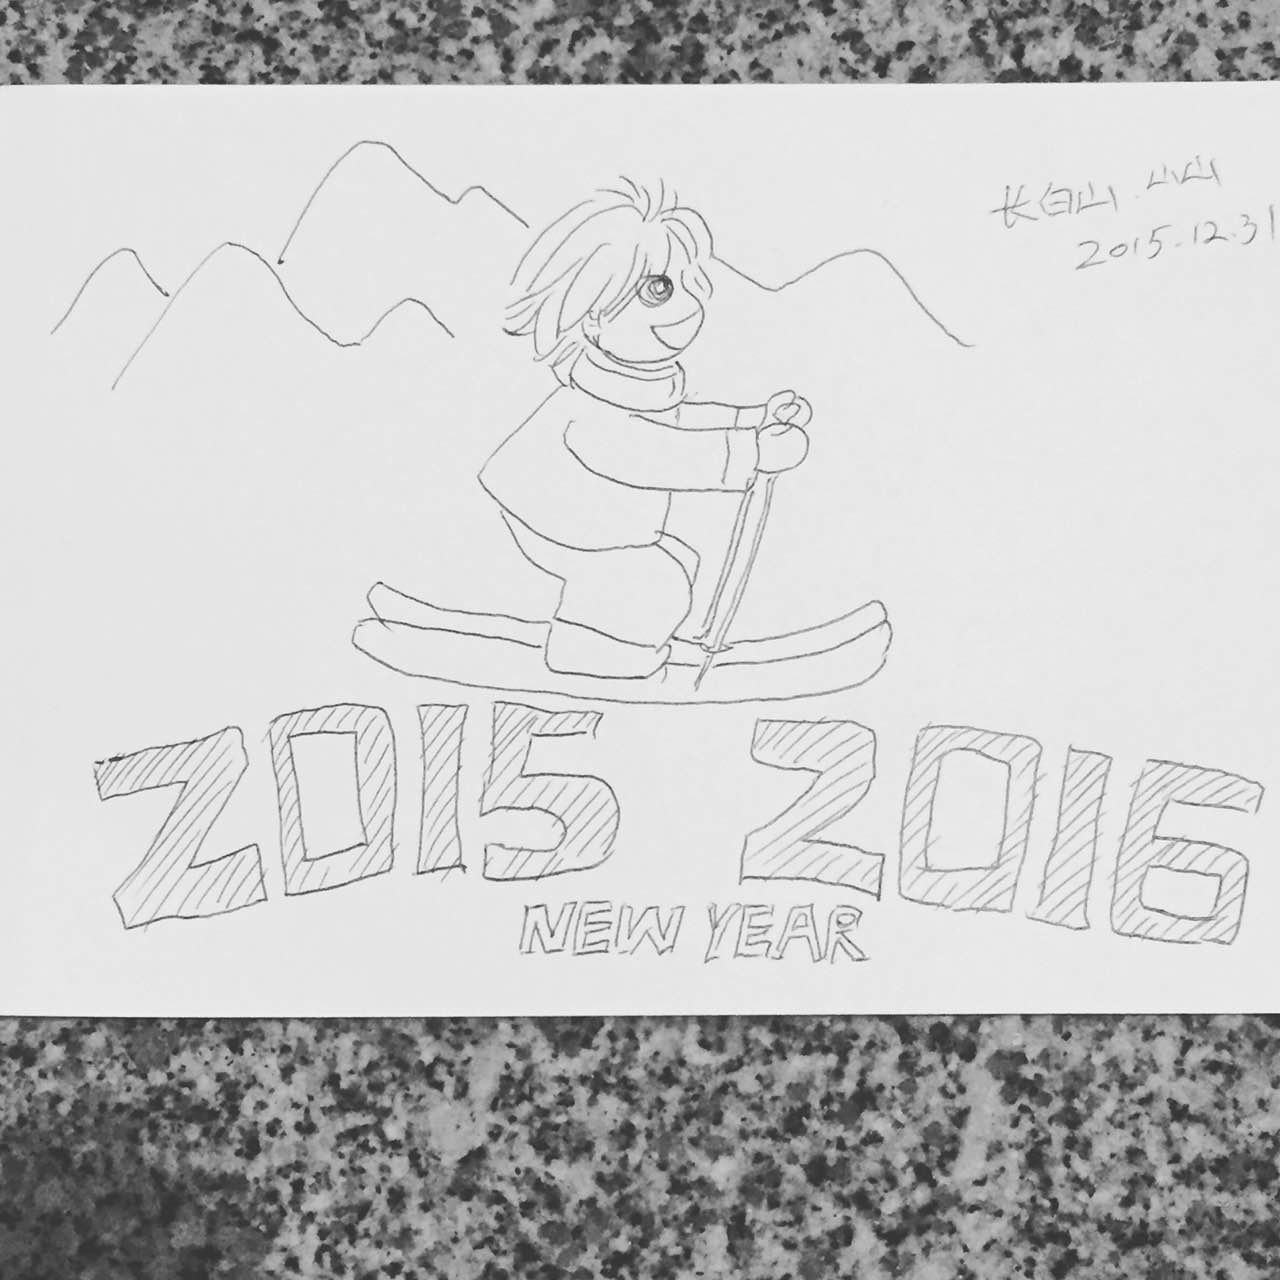 长白山.山山
2015.12.31
2015 2016
NEW YEAR